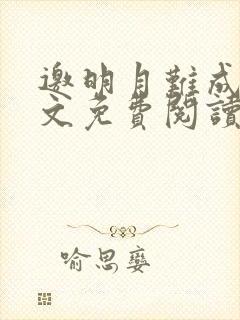 邀明月難成
文免費閱讀
喻思嬰